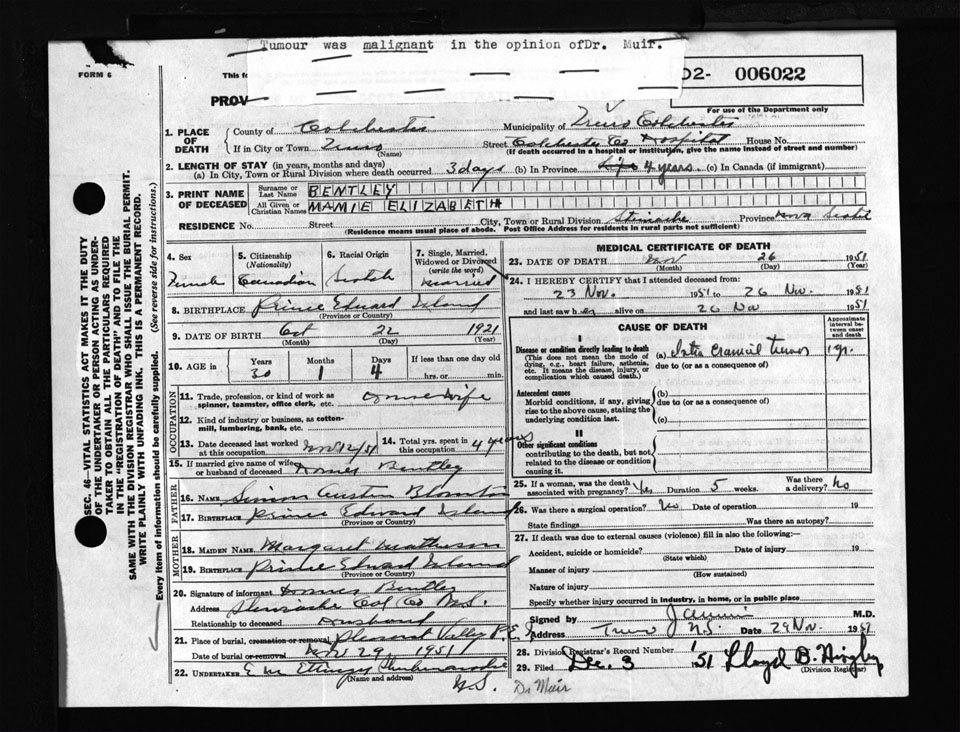 Tumour was malignant in the opinion ofDr. Muir.
FORM 6
This fo
D2- 006022
PROV
For use of the Department only
1. PLACE OF DEATH
County of Colchester
Municipality of Truro Colchester
If in City or Town Truro (Name)
Street Colchester Co Hospital House No.
(If death occurred in a hospital or institution, give the name instead of street and number)
2. LENGTH OF STAY (in years, months and days)
(a) In City, Town or Rural Division where death occurred 3 days (b) In Province 4 years. (c) In Canada (if immigrant)
3. PRINT NAME OF DECEASED
Surname or Last Name BENTLEY
All Given or Christian Names MAMIE ELIZABETH
RESIDENCE No. Street City, Town or Rural Division Stewiacke Province Nova Scotia
(Residence means usual place of abode. Post Office Address for residents in rural parts not sufficient)
4. Sex
Female
5. Citizenship (Nationality)
Canadian
6. Racial Origin
Scotch
7. Single, Married, Widowed or Divorced (write the word)
Married
8. BIRTHPLACE Prince Edward Island
(Province or Country)
9. DATE OF BIRTH Oct 22 1921
(Month) (Day) (Year)
10. AGE in Years Months Days If less than one day old
30 1 4 hrs. or min.
OCCUPATION
11. Trade, profession, or kind of work as spinner, teamster, office clerk, etc. Housewife
12. Kind of industry or business, as cotton-mill, lumbering, bank, etc.
13. Date deceased last worked at this occupation Nov 12/51
14. Total yrs. spent in this occupation 4 years
15. If married give name of wife or husband of deceased Bentley
FATHER
16. NAME Simon Austin
17. BIRTHPLACE Prince Edward Island
(Province or Country)
MOTHER
18. MAIDEN NAME Margaret Matheson
19. BIRTHPLACE Prince Edward Island
(Province or Country)
20. Signature of informant Bentley
Address Stewiacke Col Co N.S.
Relationship to deceased Husband
21. Place of burial, cremation or removal Pleasant Valley P.E.I.
Date of burial or removal Nov 29, 1951
22. UNDERTAKER
(Name and address)
N.S.
MEDICAL CERTIFICATE OF DEATH
23. DATE OF DEATH Nov 26 1951
(Month) (Day) (Year)
24. I HEREBY CERTIFY that I attended deceased from:
23 Nov. 1951 to 26 Nov. 1951
and last saw her alive on 26 Nov 1951
CAUSE OF DEATH
Approximate interval between onset and death
I
Disease or condition directly leading to death
(This does not mean the mode of dying, e.g., heart failure, asthenia, etc. It means the disease, injury, or complication which caused death.)
(a) Intra cranial tumor 1 yr.
due to (or as a consequence of)
Antecedent causes
Morbid conditions, if any, giving rise to the above cause, stating the underlying condition last.
(b)
due to (or as a consequence of)
(c)
II
Other significant conditions
contributing to the death, but not related to the disease or condition causing it.
25. If a woman, was the death associated with pregnancy? Yes Duration 5 weeks. Was there a delivery? No
26. Was there a surgical operation? No Date of operation 19
State findings Was there an autopsy?
27. If death was due to external causes (violence) fill in also the following:—
Accident, suicide or homicide? Date of injury 19
(State which)
Manner of injury
(How sustained)
Nature of injury
Specify whether injury occurred in industry, in home, or in public place
Signed by M.D.
Address Truro N.S. Date 29 Nov. 1951
28. Division Registrar's Record Number
29. Filed Dec. 3 '51 Lloyd B.
(Division Registrar)
Dr Muir
SEC. 46—VITAL STATISTICS ACT MAKES IT THE DUTY
OF THE UNDERTAKER OR PERSON ACTING AS UNDER-
TAKER TO OBTAIN ALL THE PARTICULARS REQUIRED
IN THE "REGISTRATION OF DEATH" AND TO FILE THE
SAME WITH THE DIVISION REGISTRAR WHO SHALL ISSUE THE BURIAL PERMIT.
WRITE PLAINLY WITH UNFADING INK. THIS IS A PERMANENT RECORD.
Every item of information should be carefully supplied. (See reverse side for instructions.)